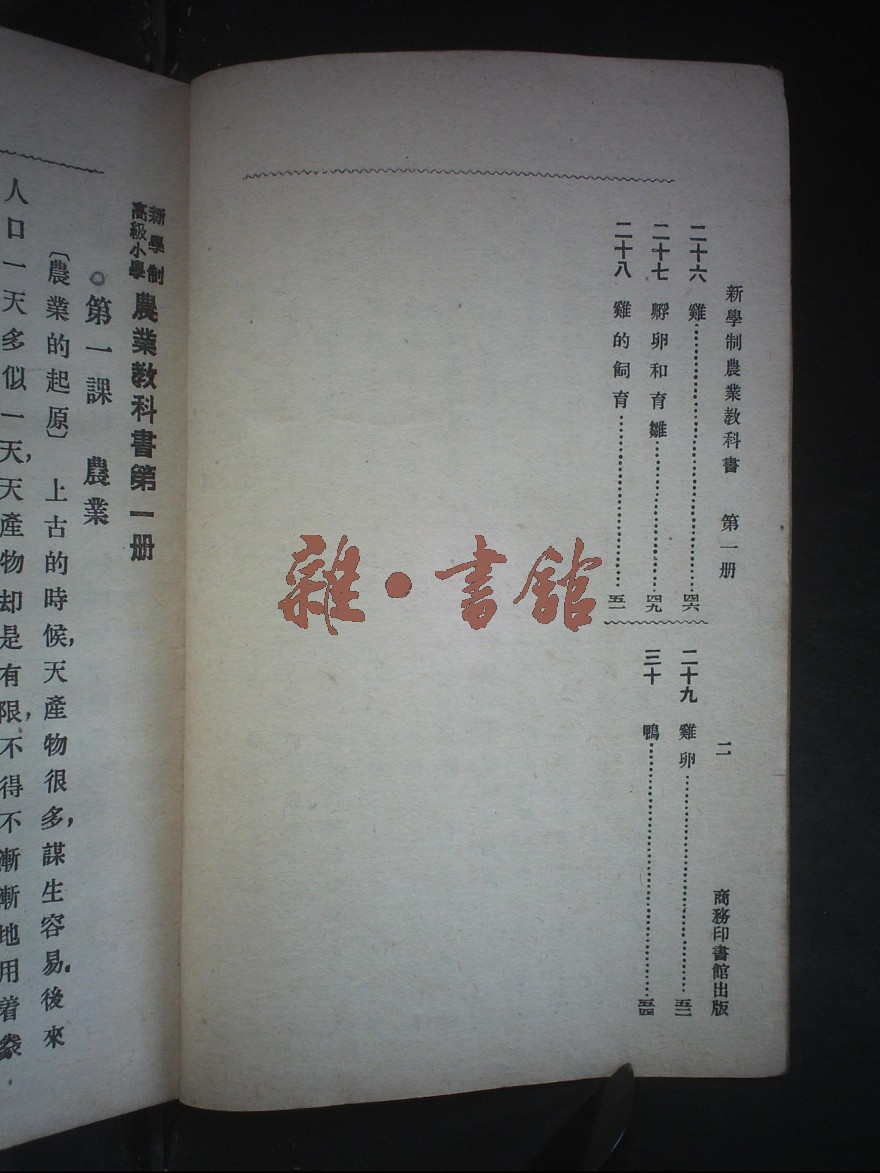 新學制農業教科書 第一册 二 商務印書館出版
二十六 雞 四六
二十七 孵卵和育雛 四九
二十八 雞的飼育 五一
二十九 雞卵 五二
三十 鴨 五四
新學制
高級小學
農業教科書第一册
第一課 農業
〔農業的起原〕 上古的時候,天產物很多,謀生容易.後來
人口一天多似一天,天產物却是有限,不得不漸漸地用着
雜·書館